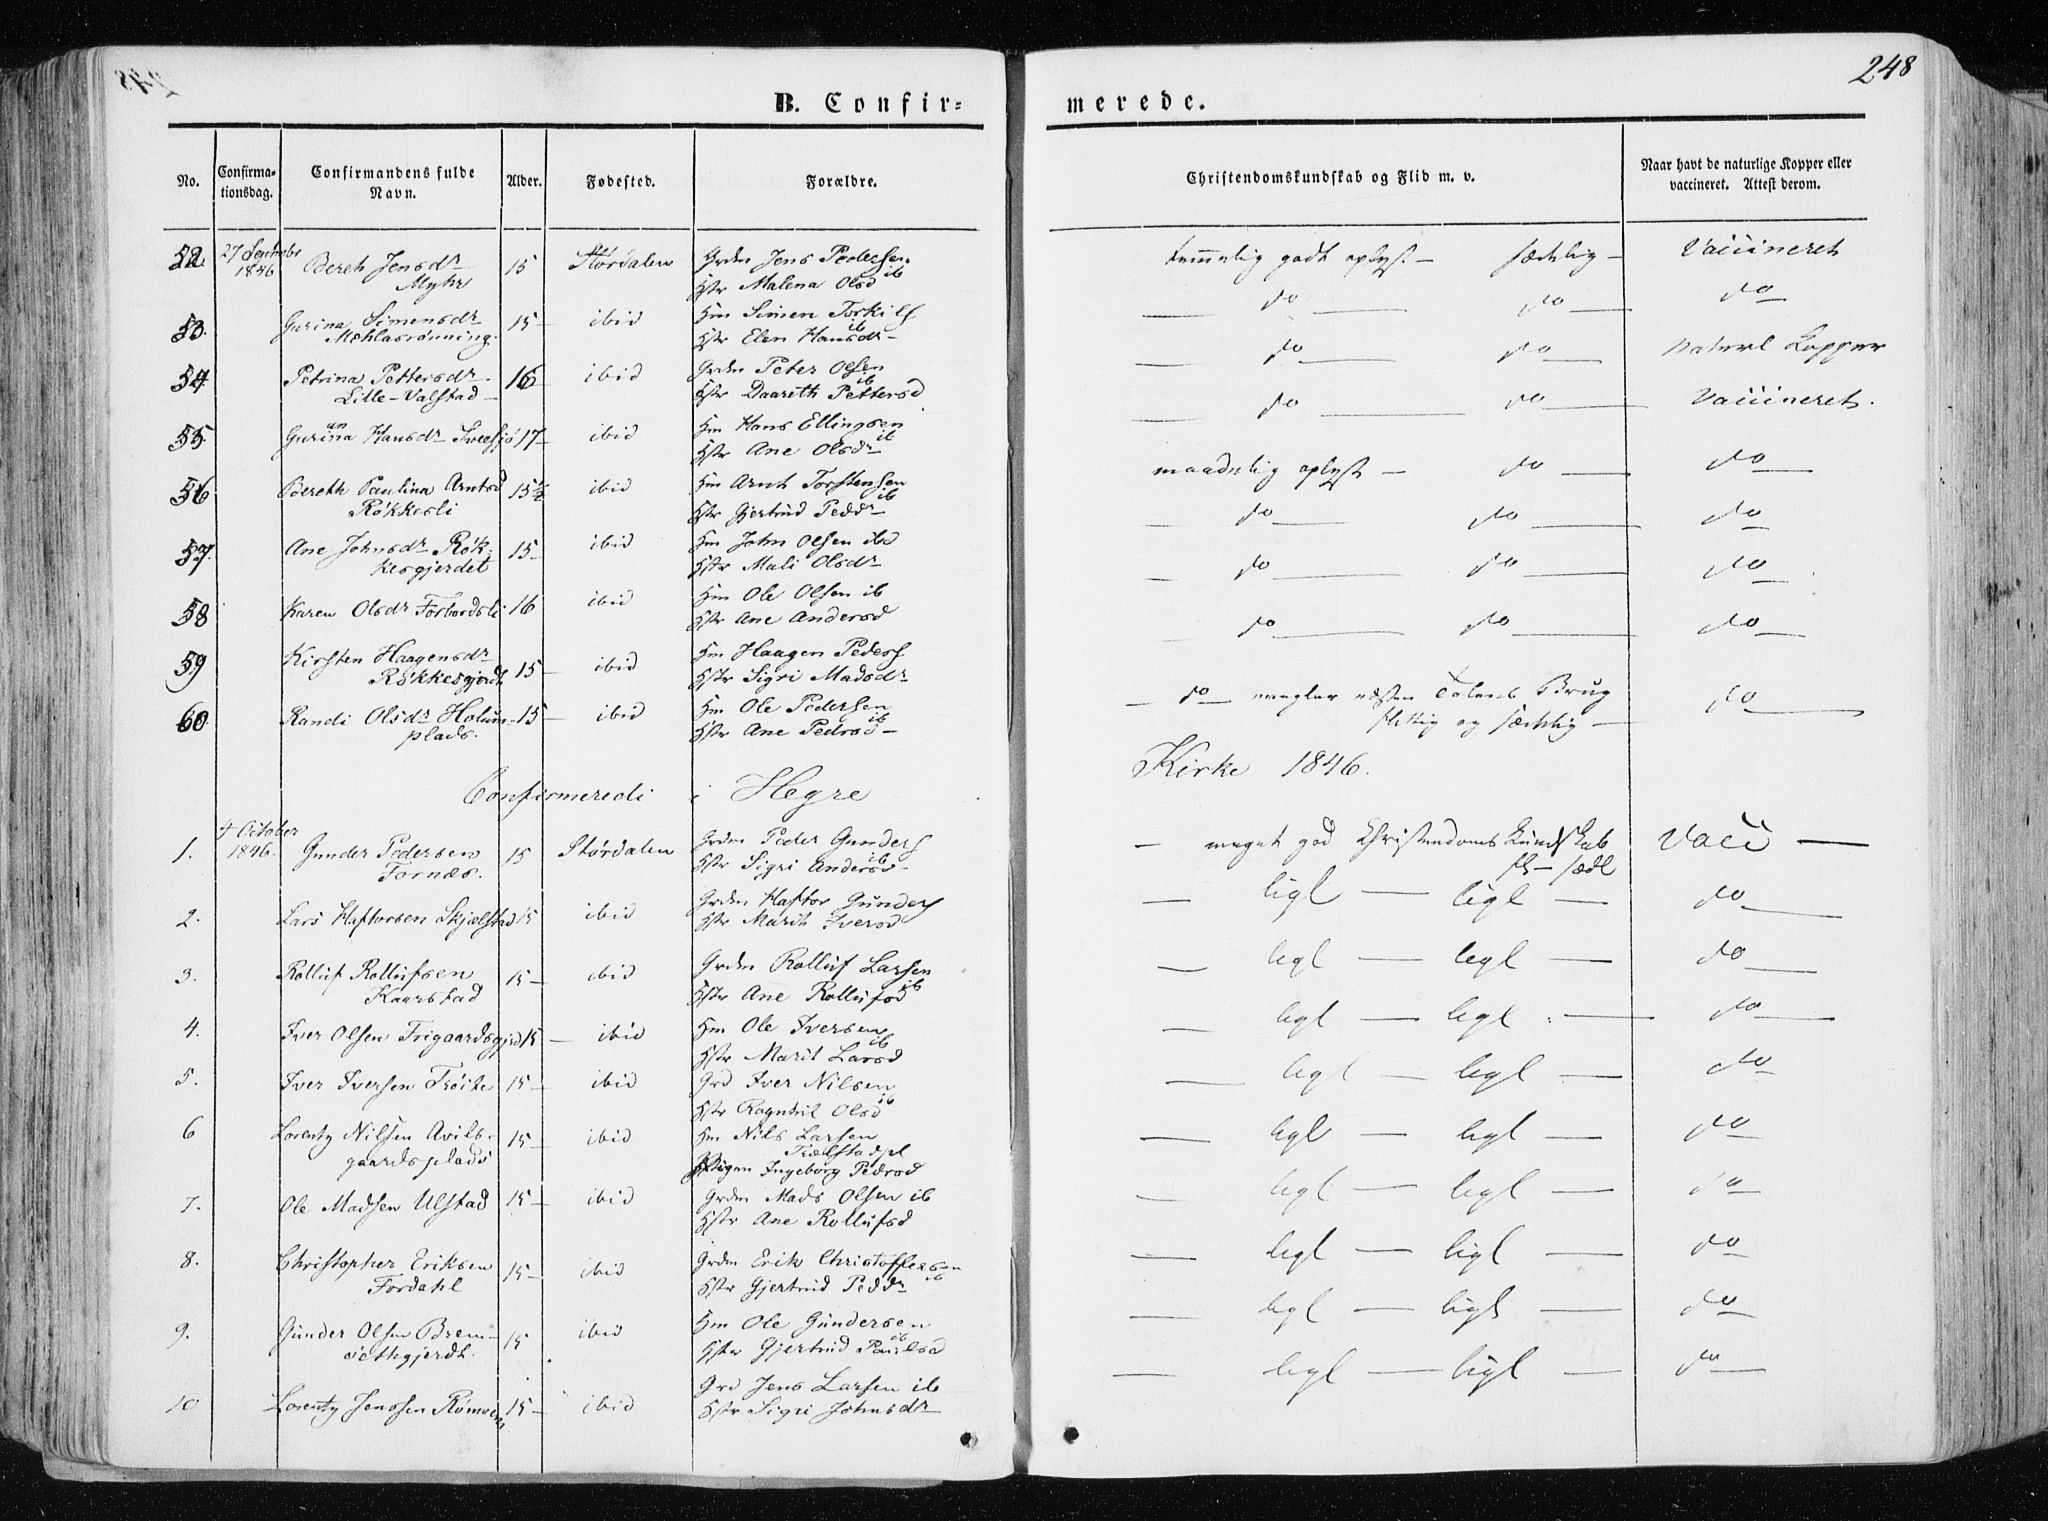 248
B. Confir=
merede.
No.
Confirma-
tionsdag.
Confirmandens fulde
Navn.
Alder.
Fødested.
Forældre.
Christendomskundskab og Flid m. v.
Naar havt de naturlige Kopper eller
vaccineret. Attest derom.
52. 27 1846 Bereth Jensdr Myhr 15 Størdalen Grdm Jens Pedersen
Hstr Malena Olsd ib
temmelig godt oplyst — sædelig — Vaccineret
53. Gurina Simensdr Mæhlasrønning 15 — ibid Hm Simen Torkils
Hstr Elen Hansdr ib
do — do — do
54. Petrina Pettersdr Lille-Valstad 16 ibid Grdm Peter Olsen
Hstr Daareth Pettersd ib
do — do — naturl Kopper
55 Hansdr 17 — ibid Hm Hans Ellingsen
Hstr Ane Olsdr ib
do — do — Vaccineret.
56 Bereth Paulina Arntsd Røkkesli 15½ ibid Hm Arnt Torstensen
Hstr Gjertrud Peddr ib
maadelig oplyst — do — do
57. Ane Johnsdr Røk-
kesgjerdet 15 — ibid Hm John Olsen ibd
Hstr Mali Olsdr
do — do — do
58 Karen Olsdr Forbordsli 16 ibid Hm Ole Olsen ib
Hstr Ane Andersd
do — do — do
59 Kirsten Haagensdr
Røkkesgjerdt 15 — ibid Hm Haagen Peders
Hstr Sigri Madsdr
do — do — do
60. Randi Olsdr Holum-
plads. 15 — ibid Hm Ole Pedersen
Hstr Ane Pedrsd ib
— do — mangler næsten Talens Brug
flittig og sædelig — do
Confirmerede i Hegre
Kirke 1846.
1. 4 October 1846. Gunder Pedersen
Fornæs. 15 Størdalen Grdm Peder Gunders
Hstr Sigri Andersd ib
— meget god Christendoms Kundskab
fl — sædl Vacc —
2. Lars Haftorsen Skjelstad 15 ibid Grdm Haftor Gunders
Hstr Marit Iversd
— ligl — ligl — do
3. Rolluf Rollufsen
Kaarstad 15 — ibid Grdm Rolluf Larsen
Hstr Ane Rollufsd ib
— ligl — ligl — do
4. Iver Olsen Frigaardsgjrd 15 — ibid Hm Ole Iversen
Hstr Marit Larsd ib
— ligl — ligl — do
5. Iver Iversen Trøite 15 — ibid Grd Iver Nilsen
Hstr Ragnhil Olsd ib
— ligl — ligl — do
6 Lorentz Nilsen Avils-
gaardsplads 15 — ibid Hm Nils Larsen
Trælstadpl
Pigen Ingeborg Pedrsd
— ligl — ligl — do
7. Ole Madsen Ulstad 15 — ibid Grdm Mads Olsen ib
Hstr Ane Rollufsd
— ligl — ligl — do
8. Christopher Eriksen
Fordahl 15 — ibid Grdm Erik Christoffersen
Hstr Gjertrud Peddr ib
— ligl — ligl — do
9. Gunder Olsen Brem-
sethgjerdt. 15 ibid Hm Ole Gundersen
Hstr Gjertrud Paulsd ib
— ligl — ligl — do
10 Lorentz Jenssen 15 — ibid Grd Jens Larsen ib
Hstr Sigri Johnsdr
— ligl — ligl — do